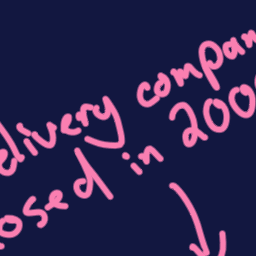 elivery compan
osed in 200